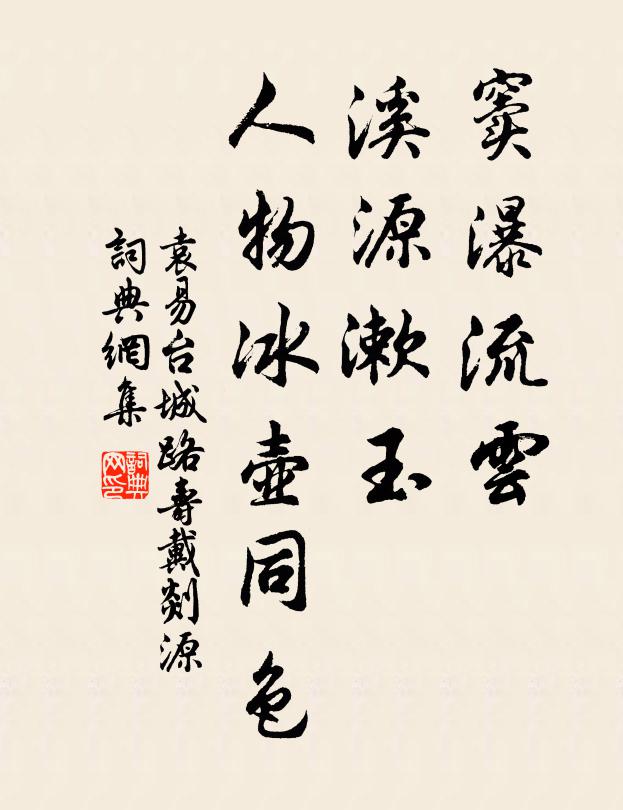 竇瀑流雲
溪源漱玉
人物冰壺同色
袁易台城路壽戴剡源
詞典網集
詞典網印